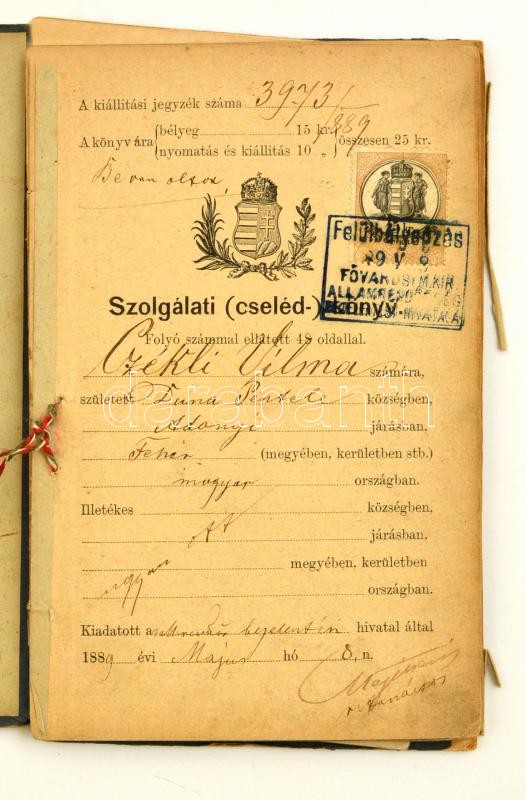 A kiállitási jegyzék száma 3973/
1889
A könyv ára bélyeg 15 kr. összesen 25 kr.
nyomatás és kiállitás 10 „
Be van oltva,
Felülbélyegzés
89 V 8
FŐVÁROSI M. KIR
Szolgálati (cseléd-) könyv.
Folyó számmal ellátott 48 oldallal.
Czékli Vilma számára,
született Duna Pentele községben,
Adonyi járásban,
Fehér (megyében, kerületben stb.)
magyar országban.
Illetékes községben,
ott járásban,
ugyan megyében, kerületben
országban.
Kiadatott a bejelentési hivatal által
1889 évi Május hó 8. n.
darabanth